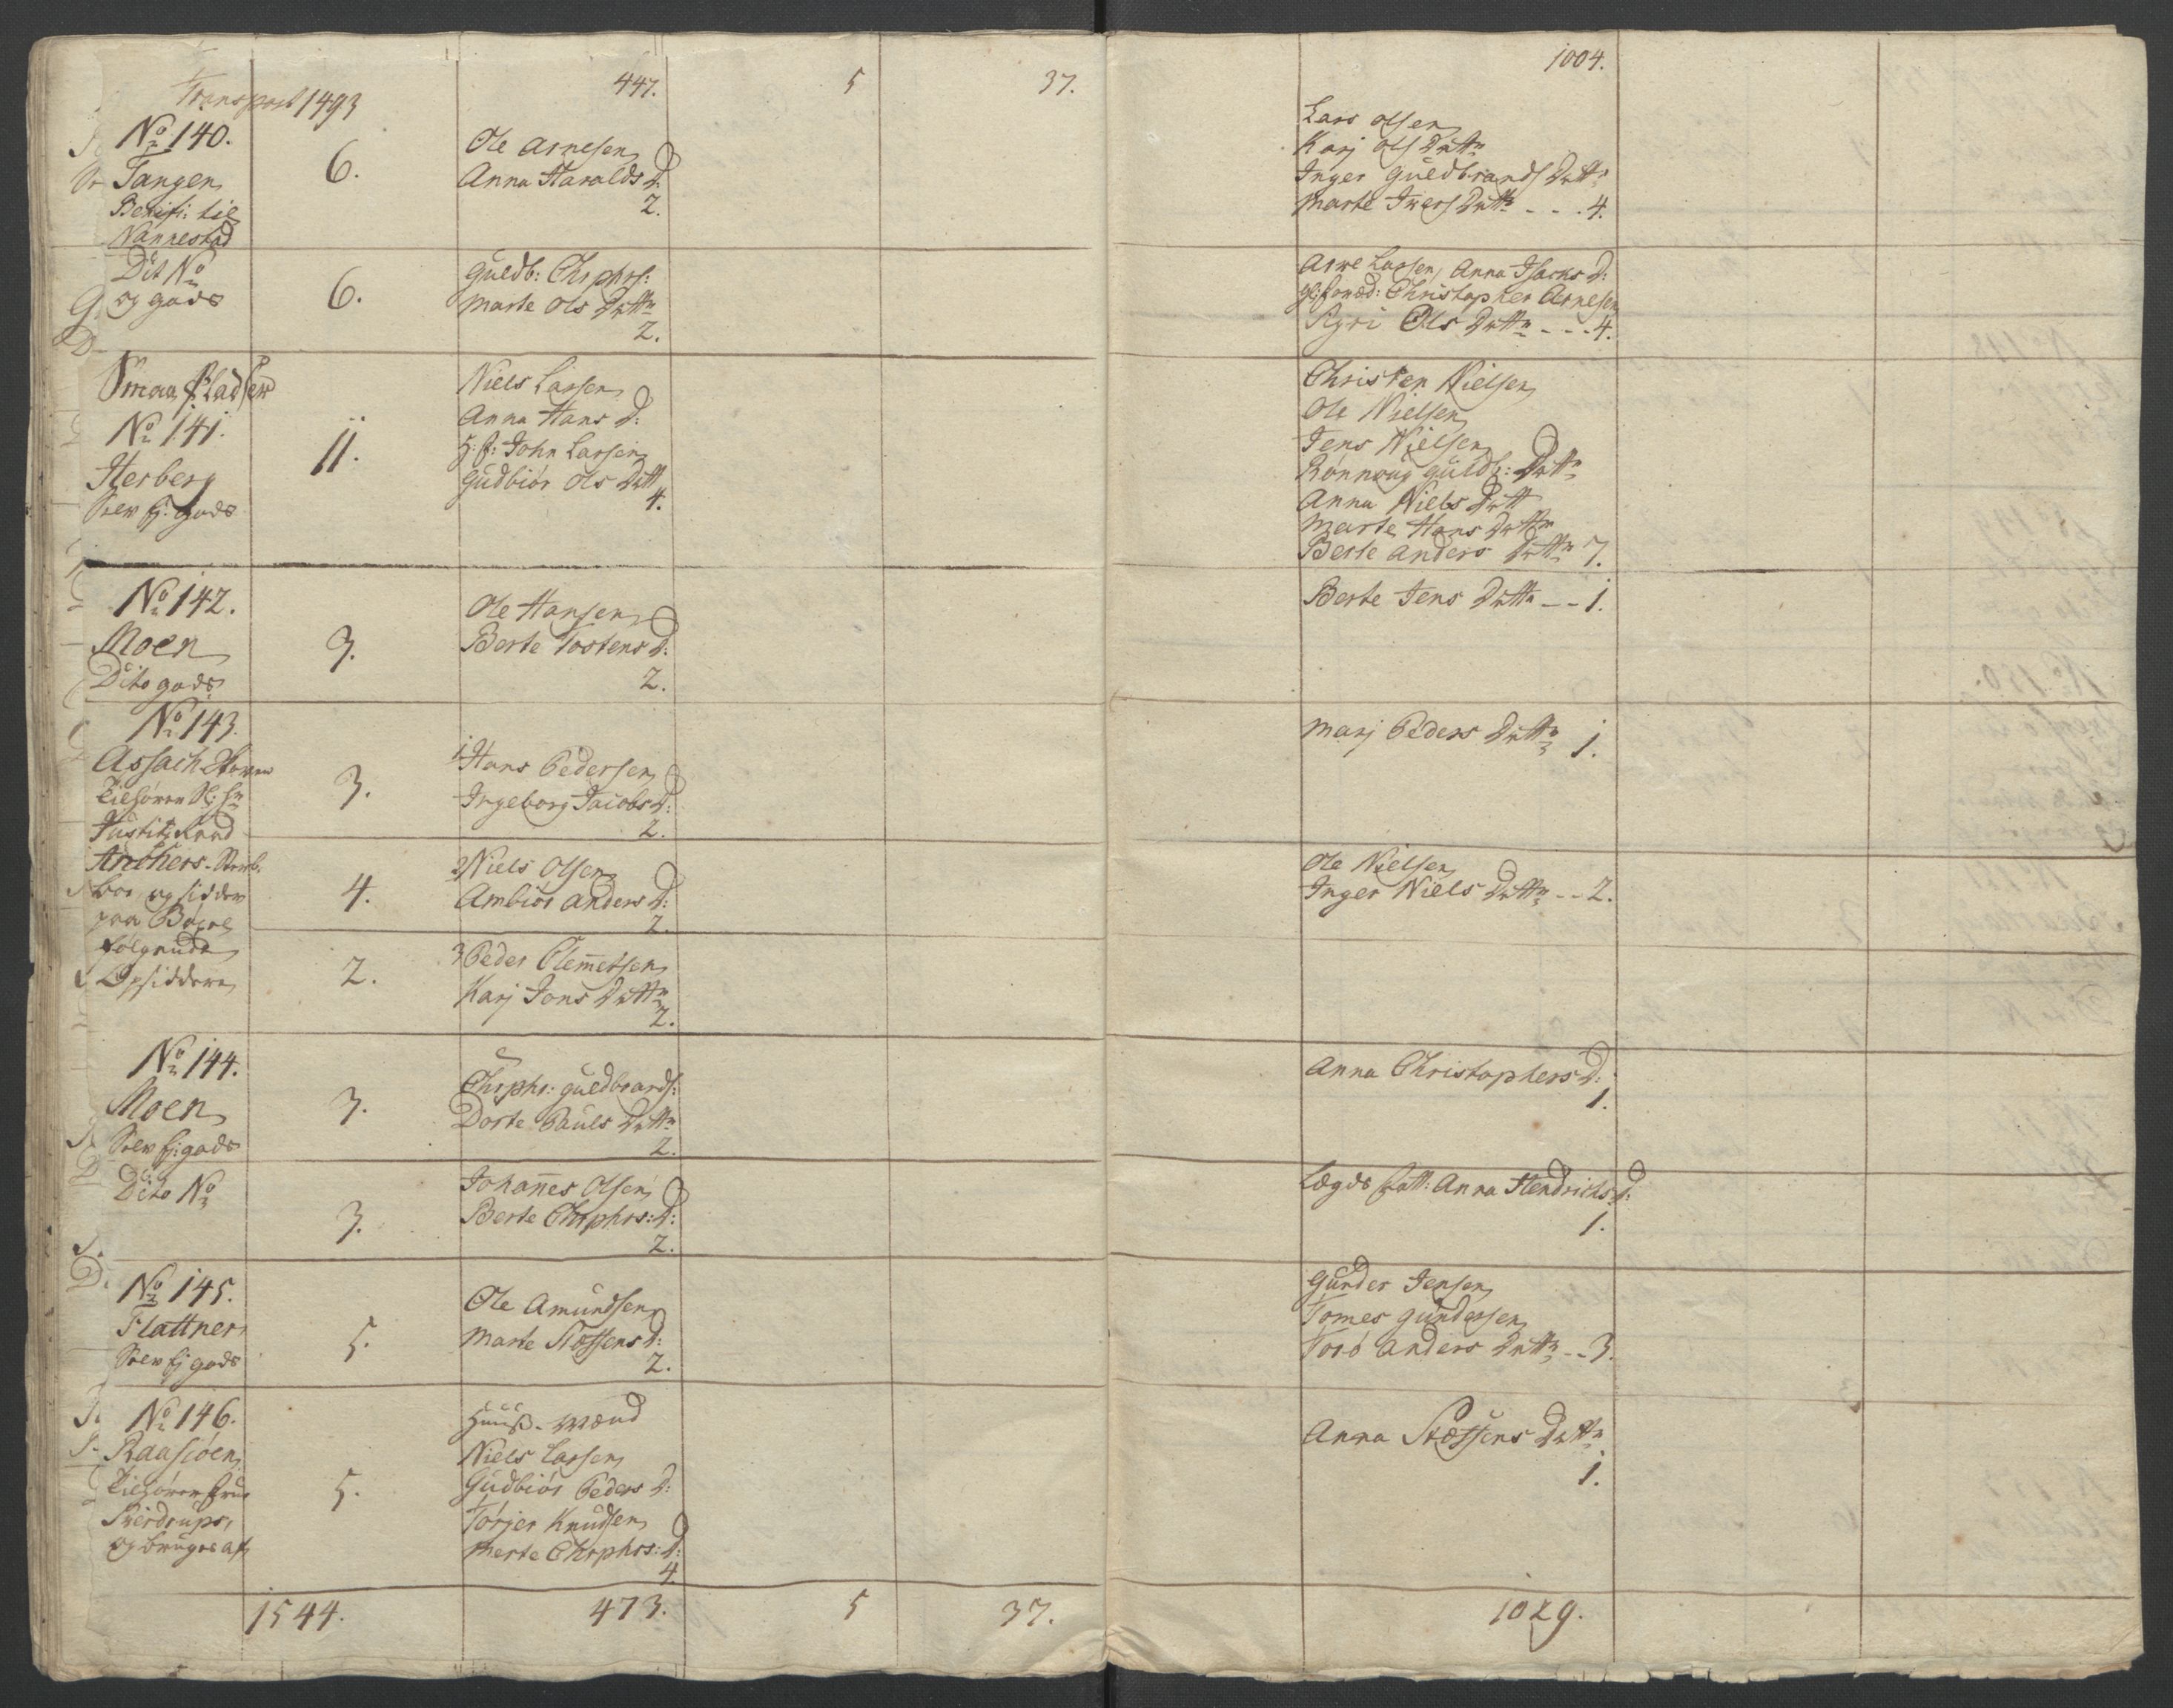 Transport 1493 447. 5 37. 1004.
No 140.
Tangen
Benefi: til
Nannestad
6.
Ole Arnesen
Anna Haralds D:
2.
Lars Olsen
Karj Ols Dttr
Inger Guldbrands Dttr
Marte Iwers Dttr - - - 4.
Dit No
og gods
6.
Guldb: Chrphrs:
Marte Ols Dttr
2.
Arne Larsen, Anna Isacks D:
Christopher Arnesen
Ols Dttr - - - 4.
Smaa Pladser
No 141.
Herberg
Selv Ej: gods
11.
Niels Larsen
Anna Hans D:
H: f: John Larsen
Gudbiör Ols Dttr
4.
Christen Nielsen
Ole Nielsen
Jens Nielsen
Rönnoug Guldb: Dttr
Anna Niels Dttr
Marte Hans Dttr
Berte Anders Dttr 7.
No 142.
Moen
Dito gods
3.
Ole Hansen
Berte Tostens D:
2.
Berte Jens Dttr - - 1.
No 143.
Tilhörer
Justitz Raad
Anchers
boe, og sidder
paa Böxel
følgende
Opsiddere
3.
1 Hans Pedersen
Ingeborg Jacobs D:
2.
Marj Peders Dttr 1.
4.
2 Niels Olsen
Ambiör Anders D:
2.
Ole Nielsen
Inger Niels Dttr - - 2.
2.
3 Peder Clemetsen
Karj Jons Dttr
2.
No 144.
Moen
Selv Ej: gods
3.
Chrphr: Guldbrands:
Dorte Pauls Dttr
2.
Anna Christophers D:
1.
Dito No
3.
Johannes Olsen
Berte Chrphrs: D:
2.
Lægds fatt: Anna Hendrichs D:
1.
No 145.
Flattner
Selv Ej gods
5.
Ole Amundsen
Marte Stoffens D:
2.
Gunder Jensen
Tomes Gundersen
Torö Anders Dttr - - 3.
No 146.
Raasiöen
Tilhörer Frue
Sverdrups,
og bruges af
5.
Huus-Mænd
Niels Larsen
Gudbiör Peders D:
Törjer Knudsen
Merte Chrphrs: D:
4
Anna Stoffens Dttr
1.
1544. 473. 5 37. 1029.